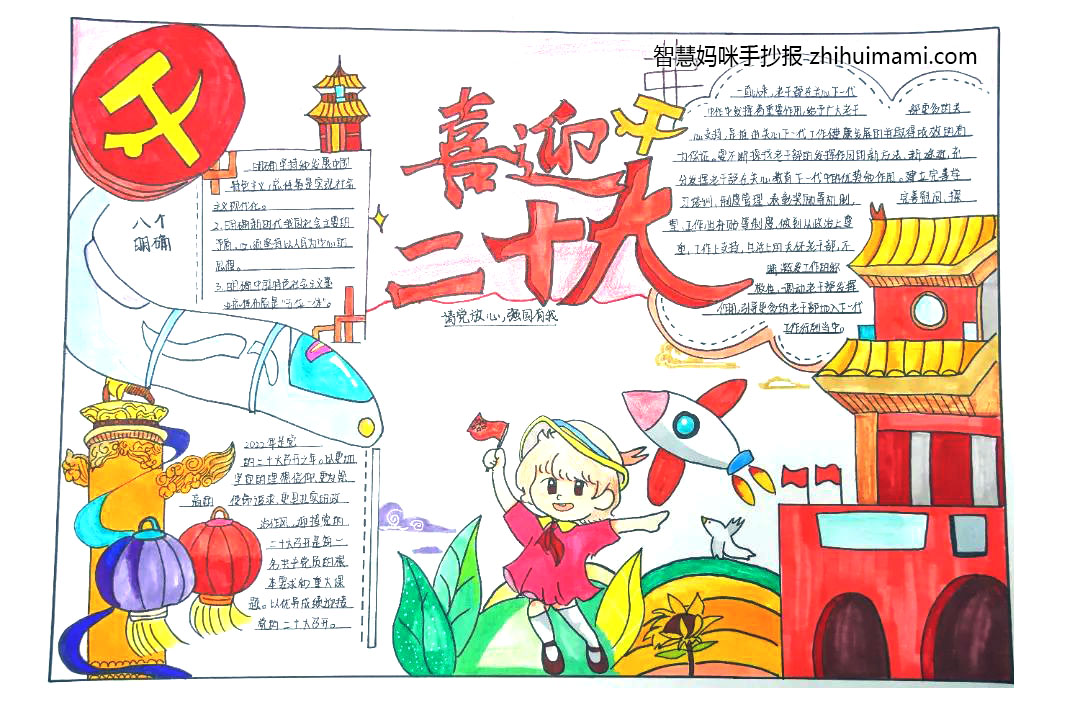 智慧妈咪手抄报-zhihuimami.com
喜迎
二十大
请党放心,强国有我
八个
明确
1.明确坚持和发展中国
特色主义,总任务是实现社会
主义现代化。
2.明确新时代我国社会主要矛
思想。
3.明确中国特色社会主义事
业总体布局是"五位一体"。
一直以来,老干部在关心下一代
工作中发挥着重要作用,给予广大老干
部更多的关
心支持,是推进关心下一代工作健康发展的并取得成效的有
力保证。要不断探代老干部的发挥作用的新方法、新途径,充
分发挥老干部在关心教育下一代中的优势和作用。建立完善学
习培训、制度管理、表彰奖励等机制,
完善慰问、探
望、工作出补助等制度,做到从政治上尊
重,工作上支持,生活上的关怀老干部,不
断激发工作的积
极性,调动老干部发挥
作用,引导更多的老干部加入下一代
工作行列当中。
2022年是党
的二十大召开之年。以更加
坚定的理想信仰,更发奋
使命追求,更扎实的政
治作风,迎接党的
二十大召开是每一
名共产党员的根
本要求和重大课
题。以优异成绩迎接
党的二十大召开。